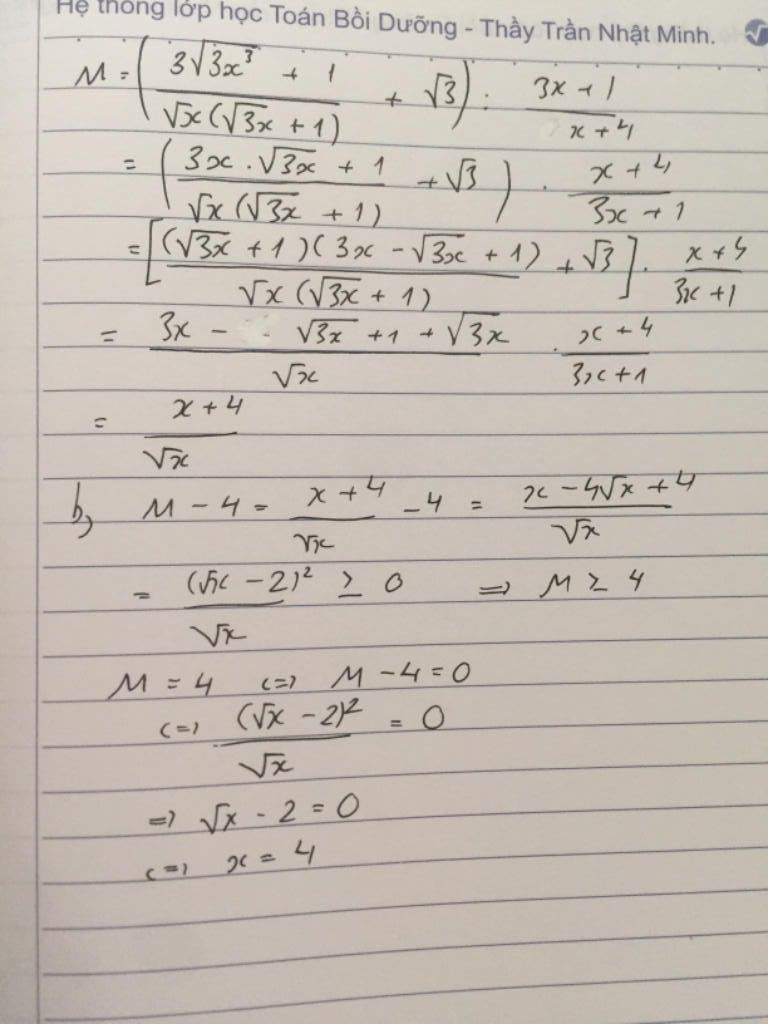 Hệ thống lớp học Toán Bồi Dưỡng - Thầy Trần Nhật Minh.
M = ( (3√3x³ + 1) / (√x(√3x + 1)) + √3 ) : (3x + 1) / (x + 4)
= ( (3x . √3x + 1) / (√x(√3x + 1)) + √3 ) . (x + 4) / (3x + 1)
= [ ((√3x + 1)(3x - √3x + 1)) / (√x(√3x + 1)) + √3 ] . (x + 4) / (3x + 1)
= (3x - √3x + 1 + √3x) / √x . (x + 4) / (3x + 1)
= (x + 4) / √x
b, M - 4 = (x + 4) / √x - 4 = (x - 4√x + 4) / √x
= (√x - 2)² / √x ≥ 0 ⇒ M ≥ 4
M = 4 <=> M - 4 = 0
<=> (√x - 2)² / √x = 0
=> √x - 2 = 0
<=> x = 4